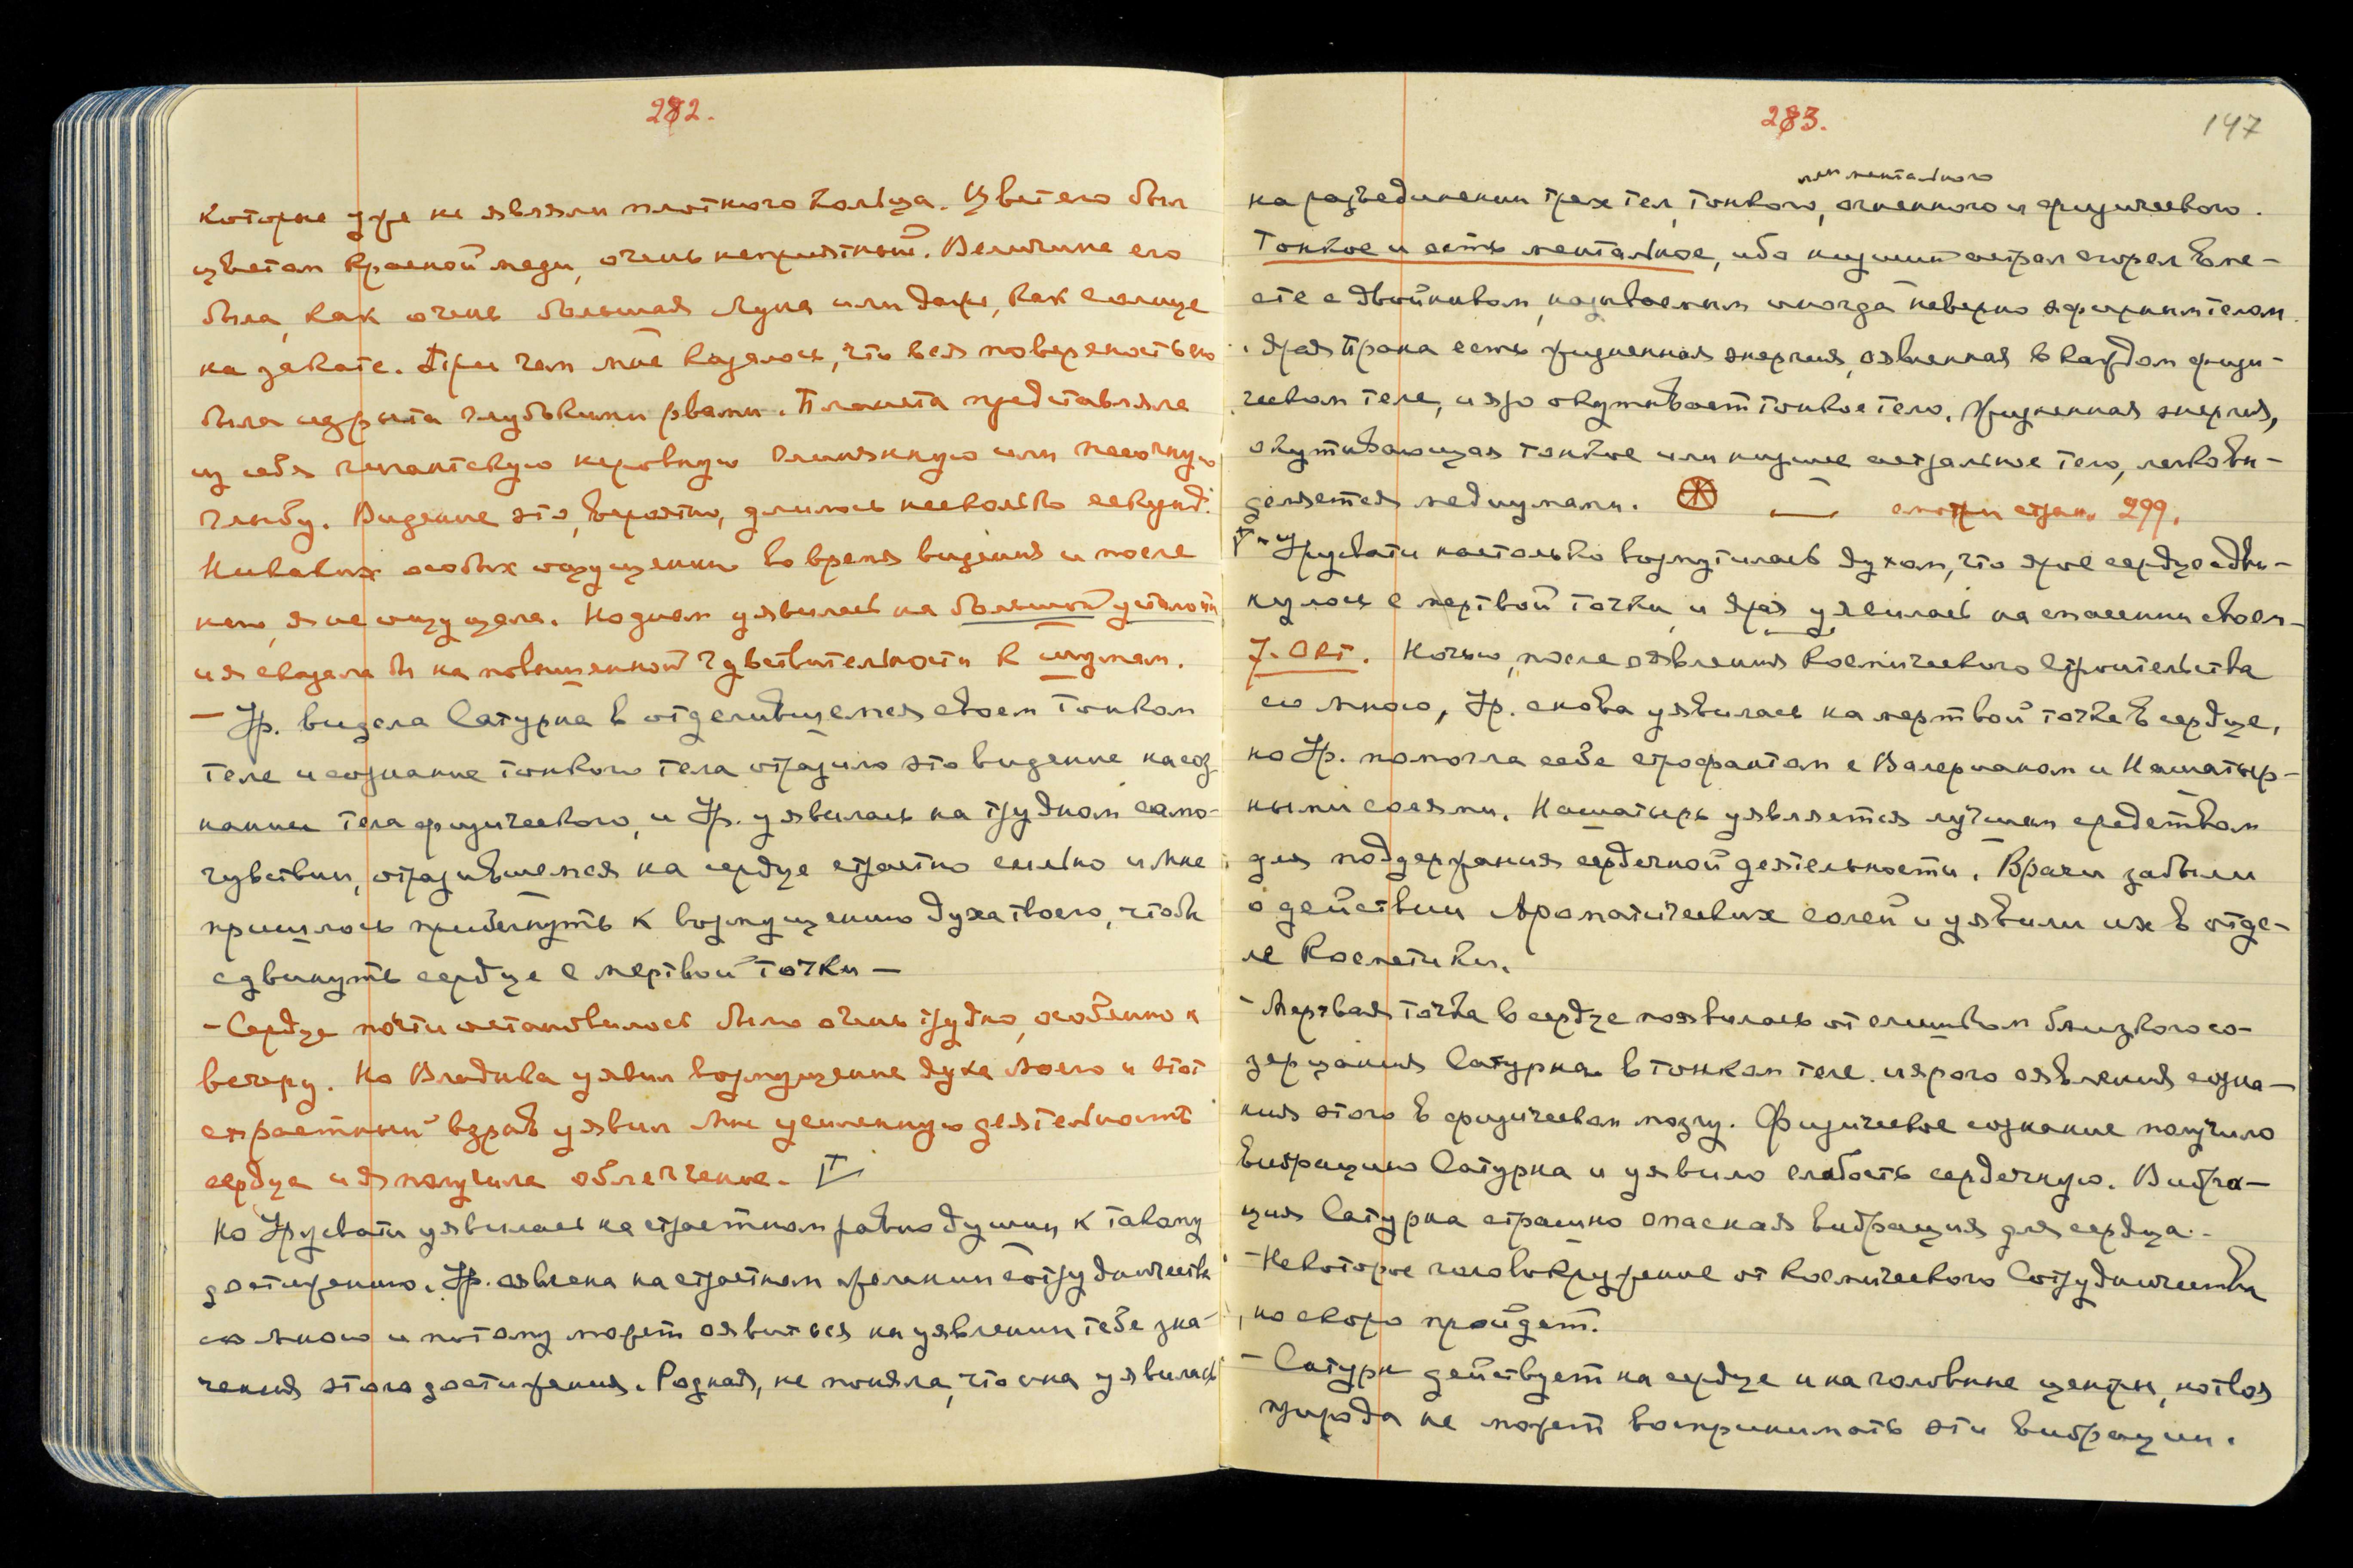 282.
которые уже не являли плотного кольца. Цвет его был
цветом красной меди, очень неприятный. Величина его
была, как очень большая Луна или даже, как солнце
на закате. При чем мне казалось, что вся поверхность его
была изрыта глубокими рвами. Планета представляла
из себя гигантскую неровную глиняную или песочную
глыбу. Видение это, вероятно, длилось несколько секунд.
Никаких особых ощущений во время видения и после
него, я не ощущала. Но днем уявилась на большой усталости
и я сказала бы на повышенной чувствительности к шумам.
— Ур. видела Сатурна в отделившемся своем тонком
теле и сознание тонкого тела отразило это видение на соз-
нании тела физического, и Ур. уявилась на трудном само-
чувствии, отразившемся на сердце страстно сильно и Мне
пришлось прибегнуть к возмущению духа твоего, чтобы
сдвинуть сердце с мертвой точки —
— Сердце почти остановилось было очень трудно, особенно к
вечеру. Но Владыка уявил возмущение духа моего и этот
страстный взрыв уявил мне усиленную деятельность
сердца и я получила облегчение. V
Но Урусвати уявилась на страстном равнодушии к такому
достижению. Ур. явлена на страстном желании сотрудничества
со мною и потому может явиться на уявлении тебе зна-
чения этого достижения. Родная, не поняла, что она уявилась
283.
147
или ментального
на разъединении трех тел, тонкого, огненного и физического.
Тонкое и есть ментальное, ибо низший астрал сгорел вме-
сте с двойником, называемым иногда неверно эфирным телом.
Ярая Прана есть жизненная энергия, явленная в каждом физи-
ческом теле, и яро окутывает тонкое тело. Жизненная энергия,
окутывающая тонкое или низшее астральное тело, легко ви-
деляется медиумами. — смотри стран. 299.
V — Урусвати настолько возмутилась духом, что ярое сердце сдви-
нулось с мертвой точки и ярая уявилась на спасении своем —
7. Окт. Ночью, после явления космического строительства
со мною, Ур. снова уявилась на мертвой точке в сердце,
но Ур. помогла себе строфантом с Валерианом и Нашатыр-
ными солями. Нашатырь уявляется лучшим средством
для поддержания сердечной деятельности. Врачи забыли
о действии Ароматических солей и уявили их в отде-
ле косметики.
— Мертвая точка в сердце появилась от слишком близкого со-
зерцания Сатурна в тонком теле и ярого явления созна-
ния этого в физическом мозгу. Физическое сознание получило
вибрацию Сатурна и уявило слабость сердечную. Вибра-
ция Сатурна страшно опасная вибрация для сердца. —
— Некоторое головокружение от космического Сотрудничества
, но скоро пройдет.
— Сатурн действует на сердце и на головные центры, но твоя
природа не может воспринимать эти вибрации.